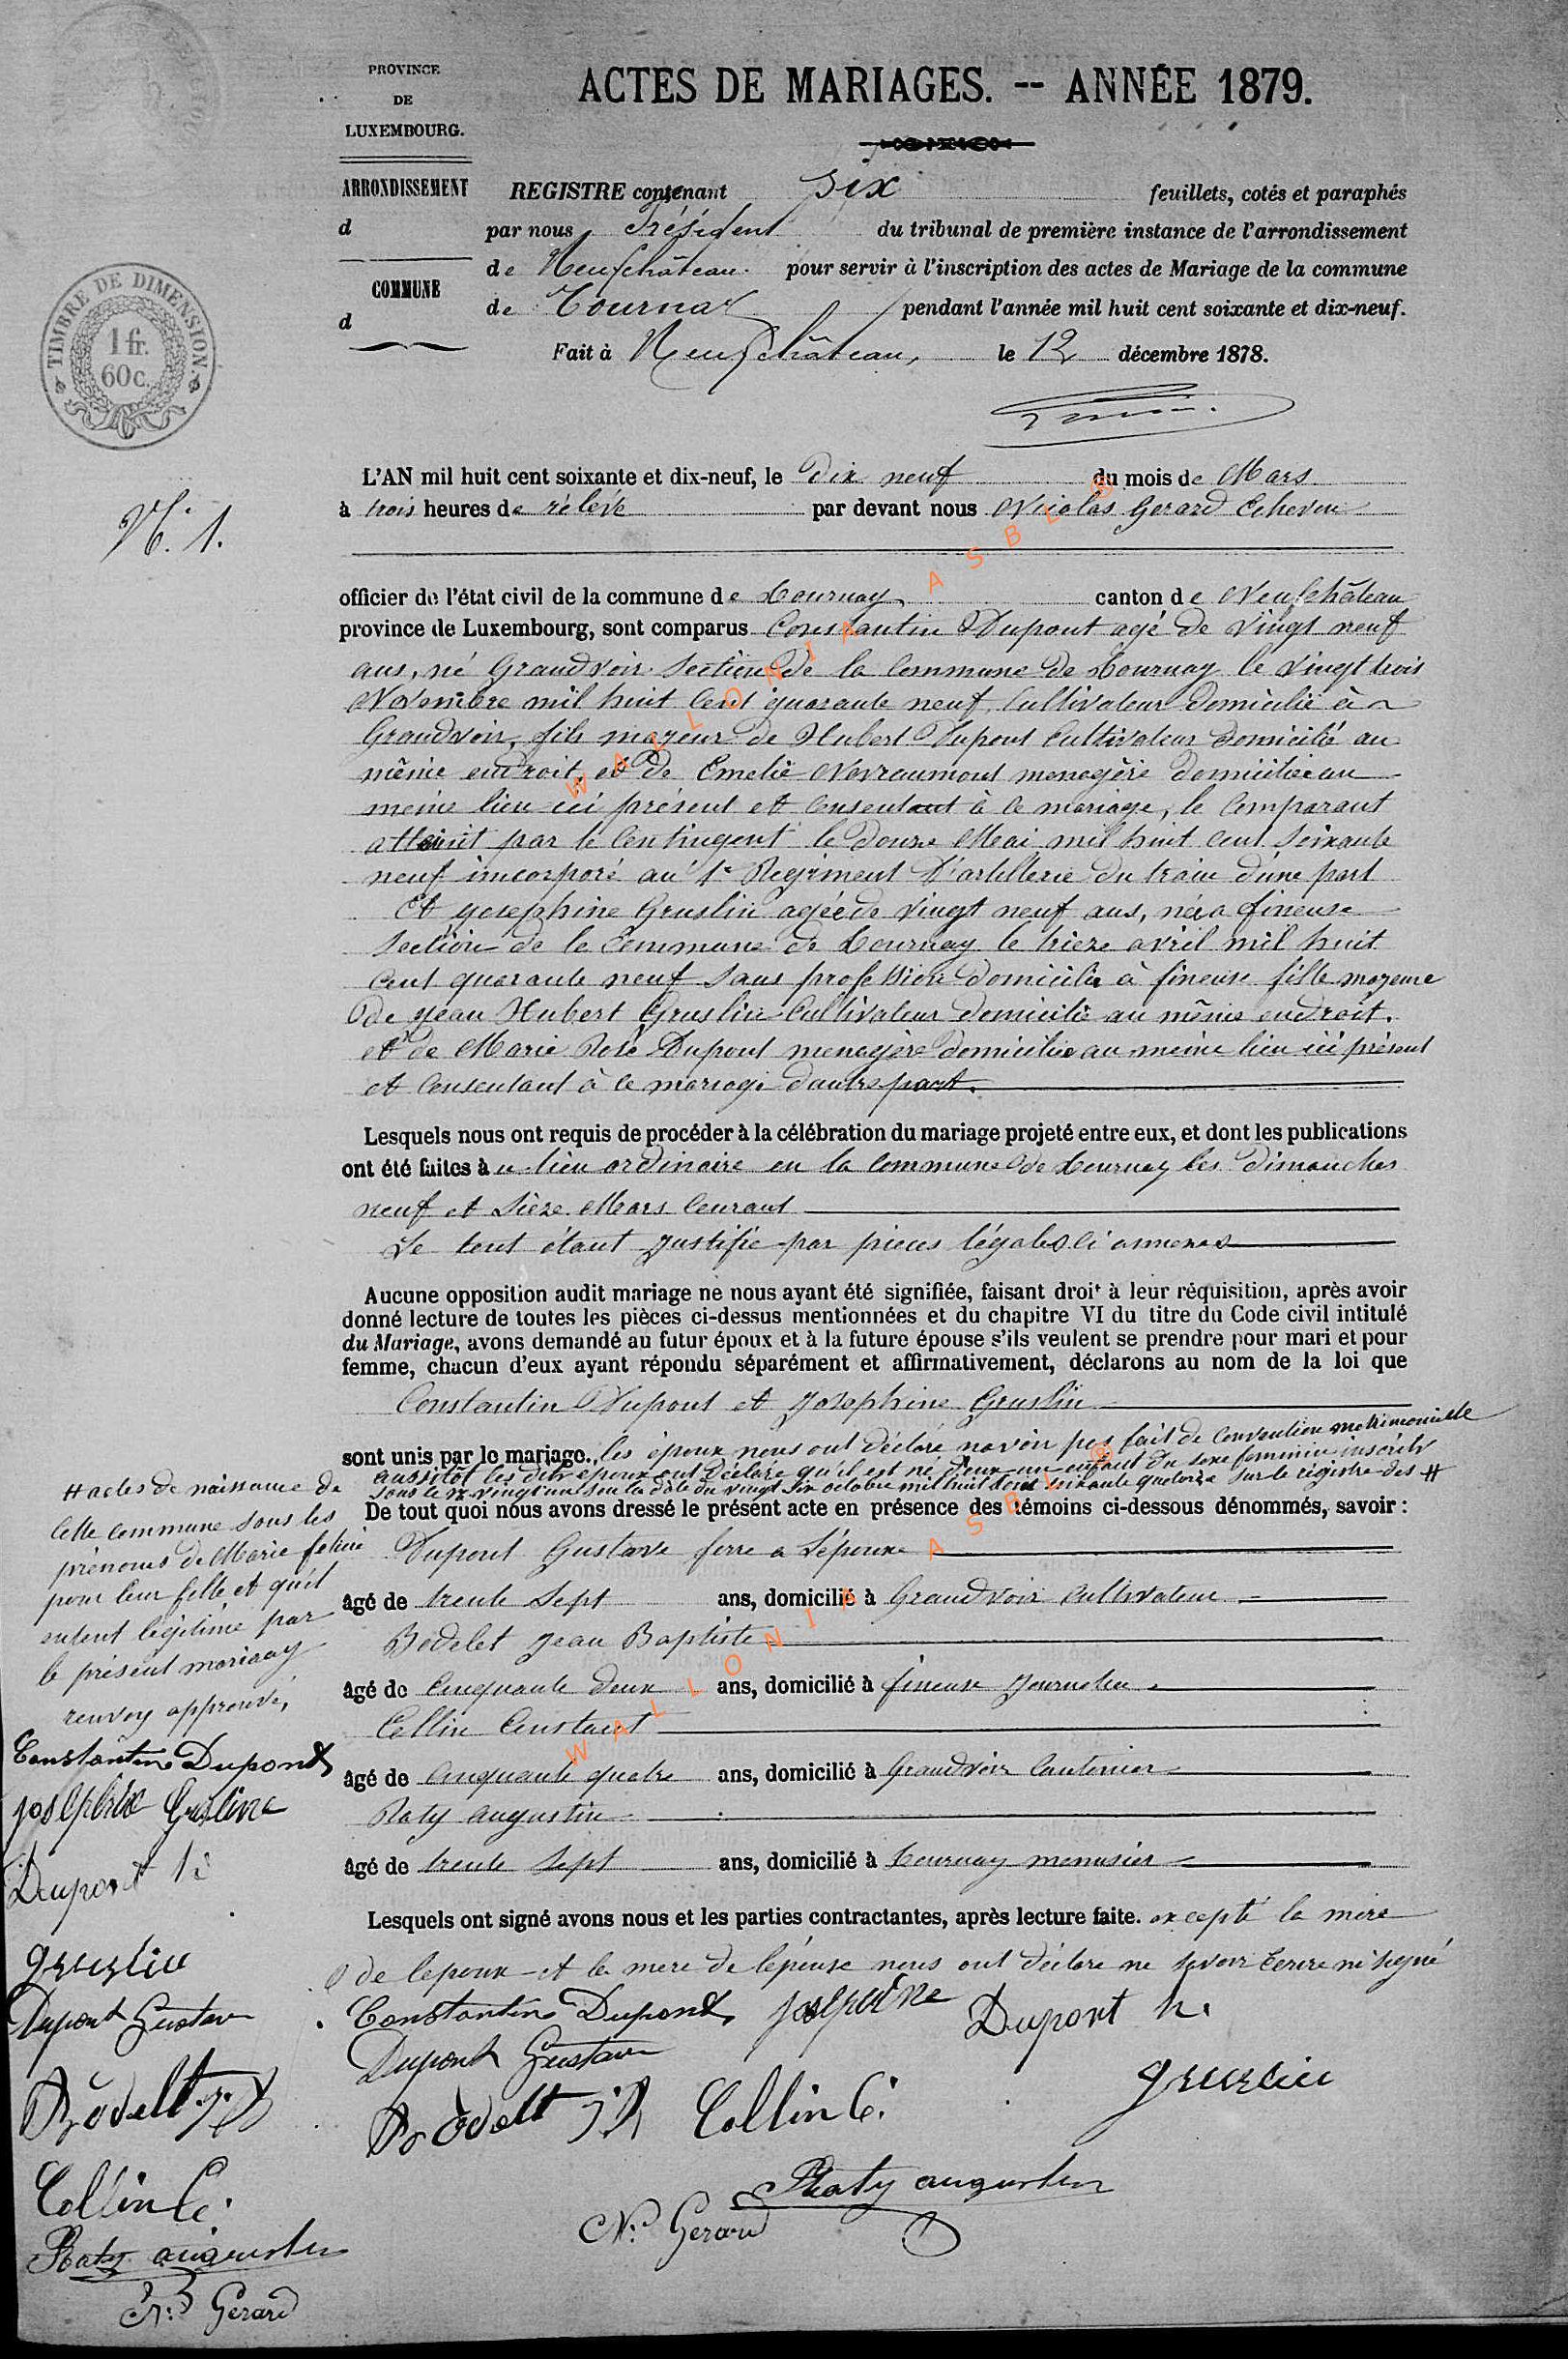 PROVINCE
DE
LUXEMBOURG.
ARRONDISSEMENT
d
COMMUNE
d
TIMBRE DE DIMENSION.
1 fr.
60 c.
ACTES DE MARIAGES. -- ANNÉE 1879.
REGISTRE contenant six feuillets, cotés et paraphés
par nous Président du tribunal de première instance de l'arrondissement
de Neufchâteau pour servir à l'inscription des actes de Mariage de la commune
de Tournay pendant l'année mil huit cent soixante et dix-neuf.
Fait à Neufchâteau, le 12 décembre 1878.
N° 1.
L'AN mil huit cent soixante et dix-neuf, le dix neuf du mois de Mars
à trois heures de rélévé par devant nous Nicolas Gerard Echevin
officier de l'état civil de la commune de Tournay canton de Neufchâteau
province de Luxembourg, sont comparus Constantin Dupont agé de vingt neuf
ans, né Grandvoir section de la commune de Tournay le vingt trois
Novembre mil huit cent quarante neuf, cultivateur domicilié à
Grandvoir, fils majeur de Hubert Dupont cultivateur domicilié au
même endroit, et de Emelie Nevraumont menagère domiciliée au
même lieu ici présent et consentant à ce mariage, le comparant
atteint par le contingent le douze Mai mil huit cent soixante
neuf incorporé au 1e Regiment d'artillerie du train d'une part
Et Josephine Gruslin agée de vingt neuf ans, née a fineuse
section de la commune de Tournay le treize avril mil huit
cent quarante neuf sans profession domiciliée à fineuse fille majeure
de Jean Hubert Gruslin cultivateur domicilié au même endroit.
et de Marie Rose Dupont menagère domiciliée au même lieu ici présent
et consentant à ce mariage d'autre part.
Lesquels nous ont requis de procéder à la célébration du mariage projeté entre eux, et dont les publications
ont été faites à u lieu ordinaire en la commune de Tournay les dimanches
neuf et sieze Mars courant
Le tout étant justifié par pieces légales ci annexes
Aucune opposition audit mariage ne nous ayant été signifiée, faisant droit à leur réquisition, après avoir
donné lecture de toutes les pièces ci-dessus mentionnées et du chapitre VI du titre du Code civil intitulé
du Mariage, avons demandé au futur époux et à la future épouse s'ils veulent se prendre pour mari et pour
femme, chacun d'eux ayant répondu séparément et affirmativement, déclarons au nom de la loi que
Constantin Dupont et Josephine Gruslin
sont unis par le mariage. les époux nous ont déclaré navoir pas fait de convention matrimonielle
aussitôt les dits époux ont déclaré qu'il est né d'eux un enfant du sexe feminin inscrite
sous le n° vingt un sur la date du vingt six octobre mil huit cent soixante quatorze sur le régistre des #
De tout quoi nous avons dressé le présent acte en présence des témoins ci-dessous dénommés, savoir :
Dupont Gustave frere a l'épouse
âgé de trente sept ans, domicilié à Grandvoir cultivateur
Bodelet Jean Baptiste
âgé de cinquante deux ans, domicilié à fineuse journalier
Collin Constant
âgé de cinquante quatre ans, domicilié à Grandvoir cantonier
Raty augustin
âgé de trente sept ans, domicilié à Tournay menuisier
Lesquels ont signé avons nous et les parties contractantes, après lecture faite. excepté la mère
de l'epoux et la mere de l'épouse nous ont déclaré ne savoir écrire ni signé
Constantin Dupont Josephine Dupont h.
Dupont Gustave
gruslin
Bodelt J B Collin C.
Raty augustin
N. Gerard
# actes de naissance de
cette commune sous les
prénoms de Marie felicie
pour leur fille et qu'il
entent légitimé par
le présent mariage
renvoy approuvé,
Constantin Dupont
Josephine Gruslin
Dupont h
gruslin
Dupont Gustave
Bodelt J B
Collin C.
Raty augustin
N. Gerard
WALLONIA ASBL ®
WALLONIA ASBL ®